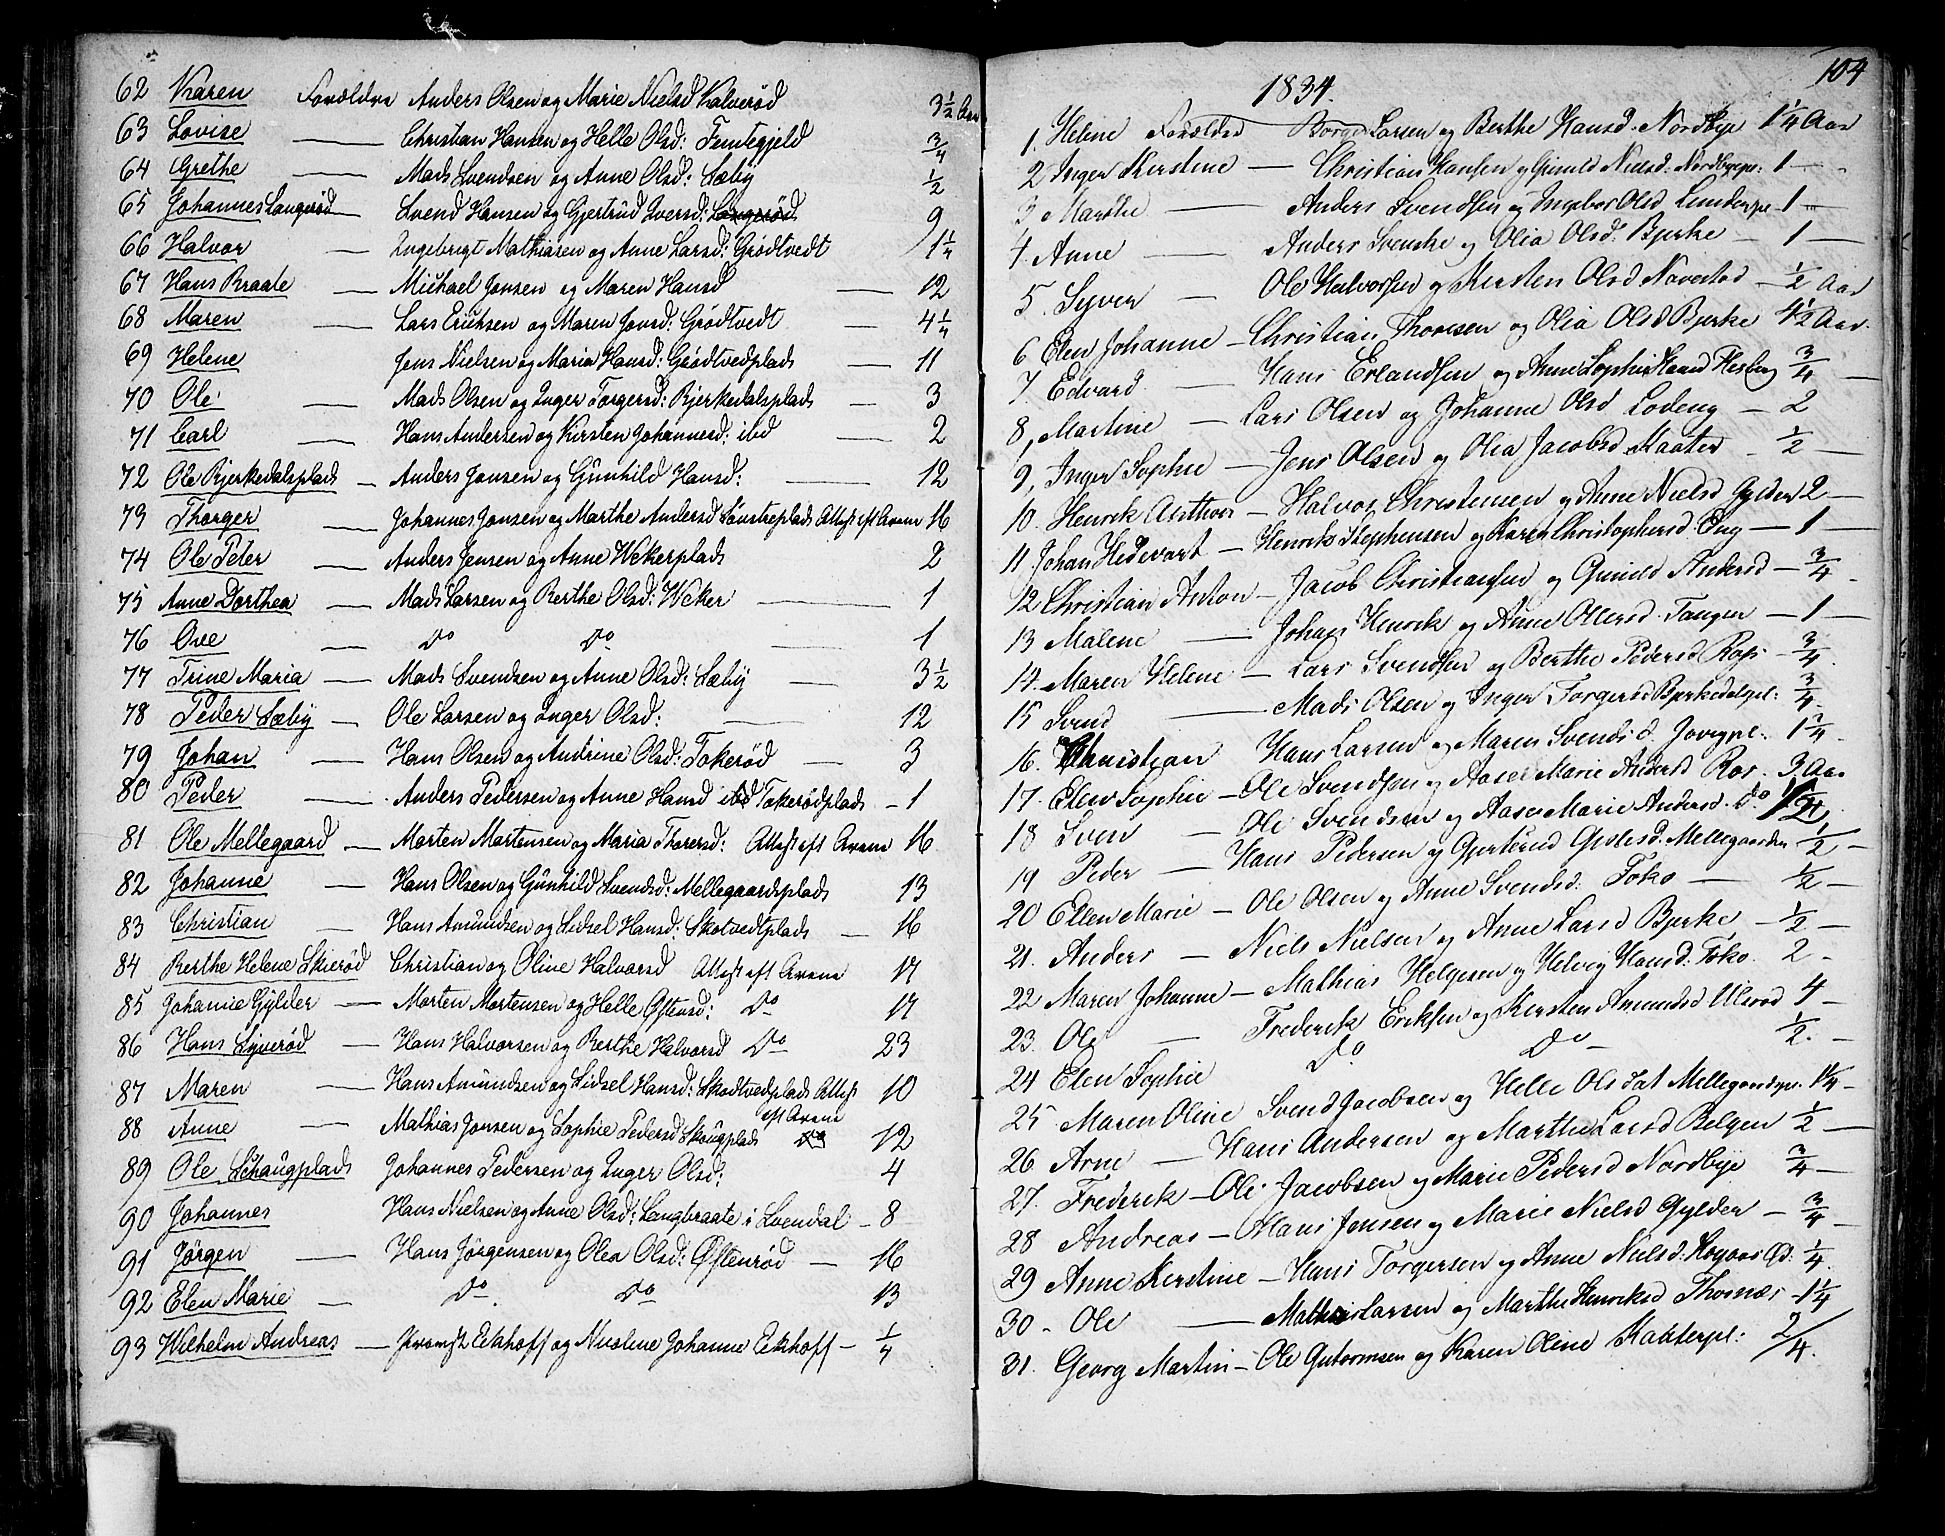 62 Karen Forældre Anders Olsen og Marie Nielsd Kalverød 3½ Aar
63 Lovise — Christian Hansen og Helle Olsd: Femtegjeld ¾
64 Grethe — Mads Svendsen og Anne Olsd: Sæby ½
65 Johannes Langerød — Svend Hansen og Gjertrud Iversd: Langerød 9
66 Halvor — Ingebrigt Mathiasen og Anne Larsd: Grødtvedt 1¼
67 Hans Kraate — Michael Jonsen og Maren Hansd — 12
68 Maren — Lars Erichsen og Maren Jonsd: Grødtvedt — 4¼
69 Helene Jens Nielsen og Maria Hansd: Grødtvedplads — 11
70 Ole — Mads Olsen og Inger Torgersd: Bjerkedalsplads — 3
71 Carl — Hans Andersen og Kirsten Johannesd: ibd — 2
72 Ole Bjerkedalsplads — Anders Jonsen og Gunhild Hansd: — 12
73 Thorger — Johannes Jonsen og Marthe Andersd Sønstreplads Attest eft Arenn 16
74 Ole Peter Anders Jensen og Anne Wekerplads 2
75 Anne Dorthea — Mads Larsen og Berthe Olsd: Weker — 1
76 Ove — Do Do — 1
77 Trine Maria — Mads Svendsen og Anne Olsd: Sæby — 3½
78 Peder Sæby — Ole Larsen og Inger Olsd: — 12
79 Johan — Hans Olsen og Andrine Olsd: Tokerød — 3
80 Peder — Anders Pedersen og Anne Hansd ibd Tokerødplads — 1
81 Ole Mellegaard — Morten Mortensen og Maria Thoresd: Attest eft 16
82 Johanne — Hans Olsen og Gunhild Svendsd: Mellegaardsplads 13
83 Christian — Hans Amundsen og Sidsel Hansd: Skotvedtplads — 16
84 Berthe Helene Skierød Christian og Oline Halvorsd Attest eft 17
85 Johanne Gylder — Morten Mortensen og Helle Oftensd: Do 17
86 Hans Syverød — Hans Halvorsen og Berthe Halvorsd Do 23
87 Maren — Hans Amundsen og Sidsel Hansd: Skodtvedplads Attest 10
88 Anne — Mathias Jonsen og Sophie Pedersd Skougplads Do 12
89 Ole Schougplads Johannes Pedersen og Inger Olsd: 4
90 Johannes Hans Nielsen og Anne Olsd: Langbraate i Svendal — 8
91 Jørgen — Hans Jørgensen og Olea Olsd: Øftenrød — 16
92 Elen Marie — Do Do 13
93 Wilhelm Andreas — Eckhoff og Nicoline Johanne Eckhoff — ¼
104
1834.
1. Helene Forældre Borge Larsen og Berthe Hansd. Nordbye 1¼ Aar
2 Inger Kerstine — Christian Hansen og Gunild Nielsd. Nordbyepl: 1 —
3 Marthe — Anders Svendsen og Ingebor Olsd Lunderpl 1 —
4. Anne — Anders Svenske og Olia Olsd: Bjerke — 1 —
5. Syver — Ole Halvorsen og Kersten Olsd Navestad — ½ Aar
6 Elen Johanne — Christian Thoresen og Olia Olsd Bjerke 4½ Aar.
7 Edvard — Hans Erlandsen og Anne Sophie Hansd Hesleng ¾ —
8, Martine — Lars Olsen og Johanne Olsd Lodeng — 2
9, Inger Sophie — Jens Olsen og Olia Jacobsd Kaater — ½ —
10. Henrik Anthon — Halvor Christensen og Anne Nielsd Gylder 2 —
11 Johan Hedevart — Henrik Stephensen og Karen Christophersd: Eng — 1 —
12 Christian Anton — Jacob Christiansen og Gunild Andersd — ¾ —
13 Malene — Johan Henrik og Anne Olersd. Tangen — 1 —
14. Maren Helene — Lars Svendsen og Berthe Pedersd Rör — ¾.
15 Svend — Mads Olsen og Inger Torgersd Bjerkedalpl: ¾.
16. Christian Hans Larsen og Maren Svendsd. Jovepl: 1¼ —
17. Elen Sophie — Ole Svendsen og Aase Marie Andersd Rör. 3 Aar
18 Sven — Ole Svendsen og Aase Marie Andersd. Do
19 Peder — Hans Pedersen og Gjertrud Gjolesd. Mellegaarden ½ —
20 Ellen Marie — Ole Olsen og Anne Svendsd: Toko — ½ —
21. Anders — Niels Nielsen og Anne Larsd Bjerke — ½ —
22 Maren Johanne — Mathias Helgesen og Helvig Hansd: Toko. 2 —
23. Ole — Frederik Eriksen og Kersten Amundsd Ulerød 4 —
24 Elen Sophie Do Do — ½. —
25 Maren Oline Svend Jacobsen og Helle Olsdat Mellegaardspl. 1¼ —
26 Arne — Hans Andersen og Marthe Larsd Belgen ½ —
27. Frederik — Ole Jacobsen og Marie Pedersd Nordbye ¾ —
28 Andreas — Hans Jensen og Marie Nielsd Gylder — ¾ —
29 Anne Kerstine — Hans Torgersen og Anne Nielsd: ¼.
30 — Ole — Mathis Larsen og Marthe Henriksd Thornæs — 1¼
31. Georg Martin — Ole Gutormsen og Karen Oline Kaaterpl: 2/4.